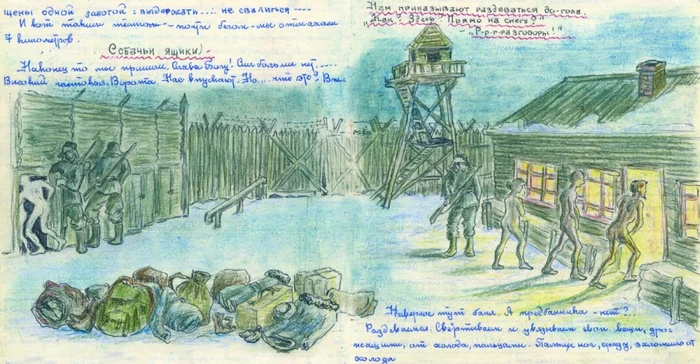 щены одной заботой: выдержать.... не свалиться----
И вот таким темпом -- почти бегом - мы отмахали
7 километров.
Собачьи ящики
Наконец то мы пришли. Слава Богу! Сил больше нет.....
Высокий частокол. Ворота. Нас впускают. Но... что это?
Нам приказывают раздеваться до-гола.
"Как? Здесь? Прямо на снегу?"
"Р-р-разговоры!"
Наверное тут баня. А предбанника - нет?...
Раздеваемся. Свёртываем и увязываем свои вещи,
от холода, пальцами. Пальцы ног, сразу,
холода